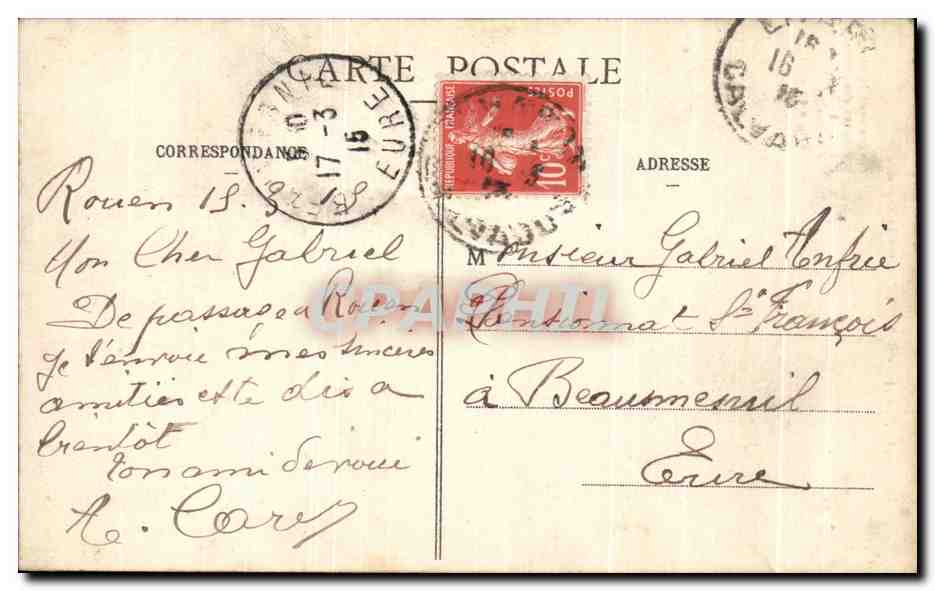 CARTE POSTALE
CORRESPONDANCE
ADRESSE
17-3
15
EURE
REPUBLIQUE FRANÇAISE
POSTES
10c
16
Rouen 15.3.15
Mon Cher Gabriel
De passage a Rouen
je t'envoie mes sincères
amitiés et te dis a
bientôt
Ton ami dévoué
A. Carey
Monsieur Gabriel Anfrie
Pensionnat St François
à Beaumesnil
Eure
CPARHIL